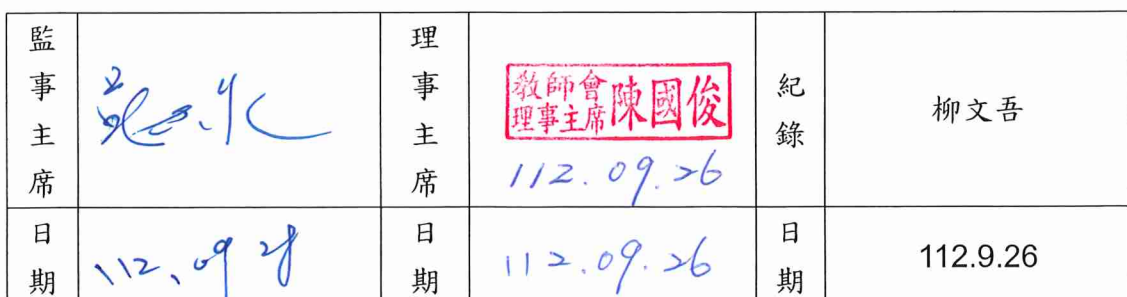 監事主席
理事主席
教師會
理事主席 陳國俊
112.09.26
紀錄
柳文吾
日期
112.09
日期
112.09.26
日期
112.9.26